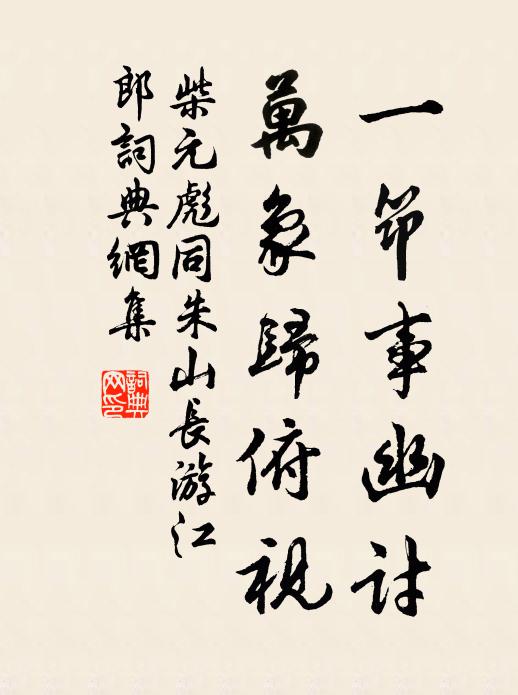 一筇事幽討
萬象歸俯視
柴元彪同朱山長游江
郎詞典網集
詞典
网印